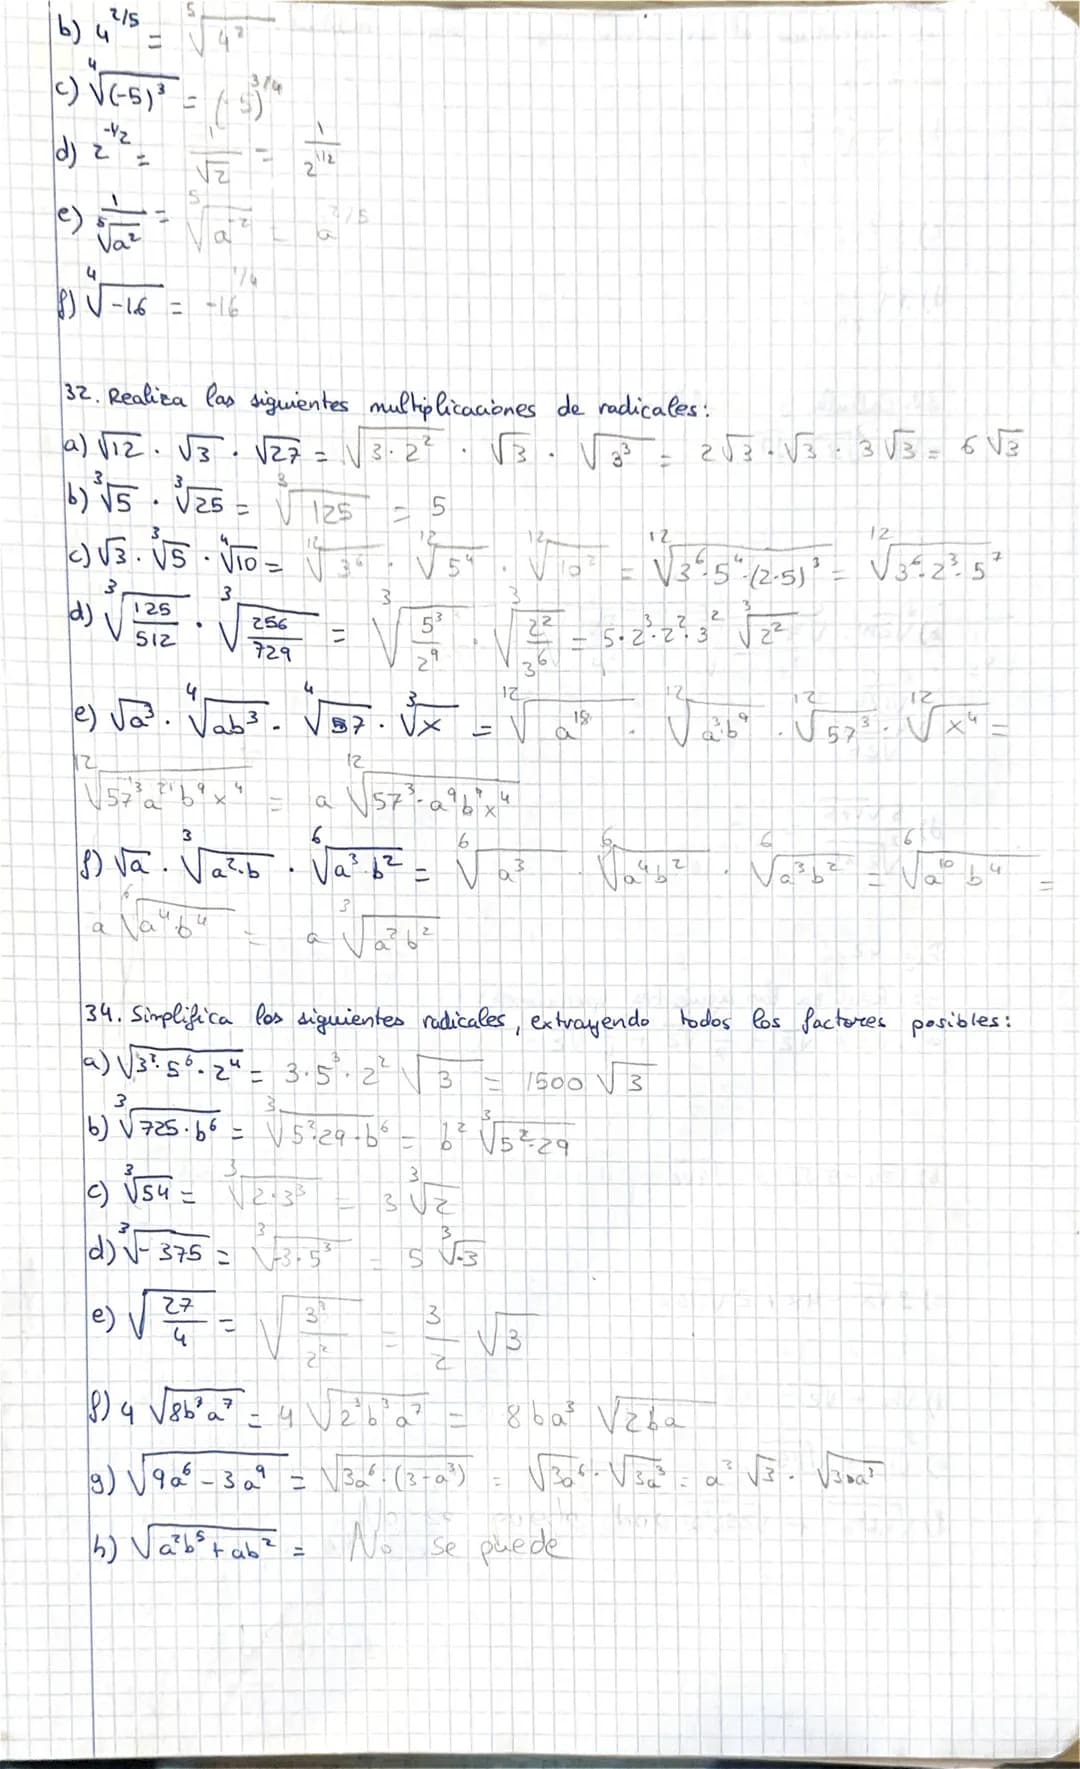 b) 4^(2/5) = ⁵√(4²)
c) ⁴√((-5)³) = (-5)^(3/4)
d) 2^(-1/2) = 1/√2 = 1/2^(1/2)
e) 1/⁵√(a²) = ⁵√(a^(-2)) = a^(2/5)
f) ⁴√(-16) = -16^(1/4)
32. Realiza las siguientes multiplicaciones de radicales:
a) √12 · √3 · √27 = √(3·2²) · √3 · √(3³) = 2√3 · √3 · 3√3 = 6√3
b) ³√5 · ³√25 = ³√125 = 5
c) √3 · ³√5 · ⁴√10 = ¹²√(3⁶) · ¹²√(5⁴) · ¹²√(10³) = ¹²√(3⁶·5⁴·(2·5)³) = ¹²√(3⁶·2³·5⁷)
d) ³√(125/512) · ³√(256/729) = ³√(5³/2⁹) · ³√(2²/3⁶) = 5·2³·2²·3² ³√(2²)
e) √(a³) · ⁴√(ab³) · ⁴√57 · ³√x = ¹²√(a¹⁸) · ¹²√(a³b⁹) · ¹²√(57³) · ¹²√(x⁴) =
¹²√(57³a²¹b⁹x⁴) = a ¹²√(57³·a⁹b⁹x⁴)
f) √a · ³√(a²·b) · ⁶√(a³·b²) = ⁶√(a³) · ⁶√(a⁴b²) · ⁶√(a³b²) = ⁶√(a¹⁰b⁴) =
a ⁶√(a⁴·b⁴) = a ³√(a²b²)
34. Simplifica los siguientes radicales, extrayendo todos los factores posibles:
a) √(3³·5⁶·2⁴) = 3·5³·2² √3 = 1500 √3
b) ³√(725·b⁶) = ³√(5²·29·b⁶) = b² ³√(5²·29)
c) ³√54 = ³√(2·3³) = 3 ³√2
d) ³√(-375) = ³√(-3·5³) = 5 ³√(-3)
e) √(27/4) = √(3³/2²) = 3/2 √3
f) 4 √(8b³a⁷) = 4 √(2³b³a⁷) = 8ba³ √(2ba)
g) √(9a⁶ - 3a⁹) = √(3a⁶·(3-a³)) = √(3a⁶) · √(3a³) = a³ √3 ·
h) √(a²b⁵ + ab²) = No se puede